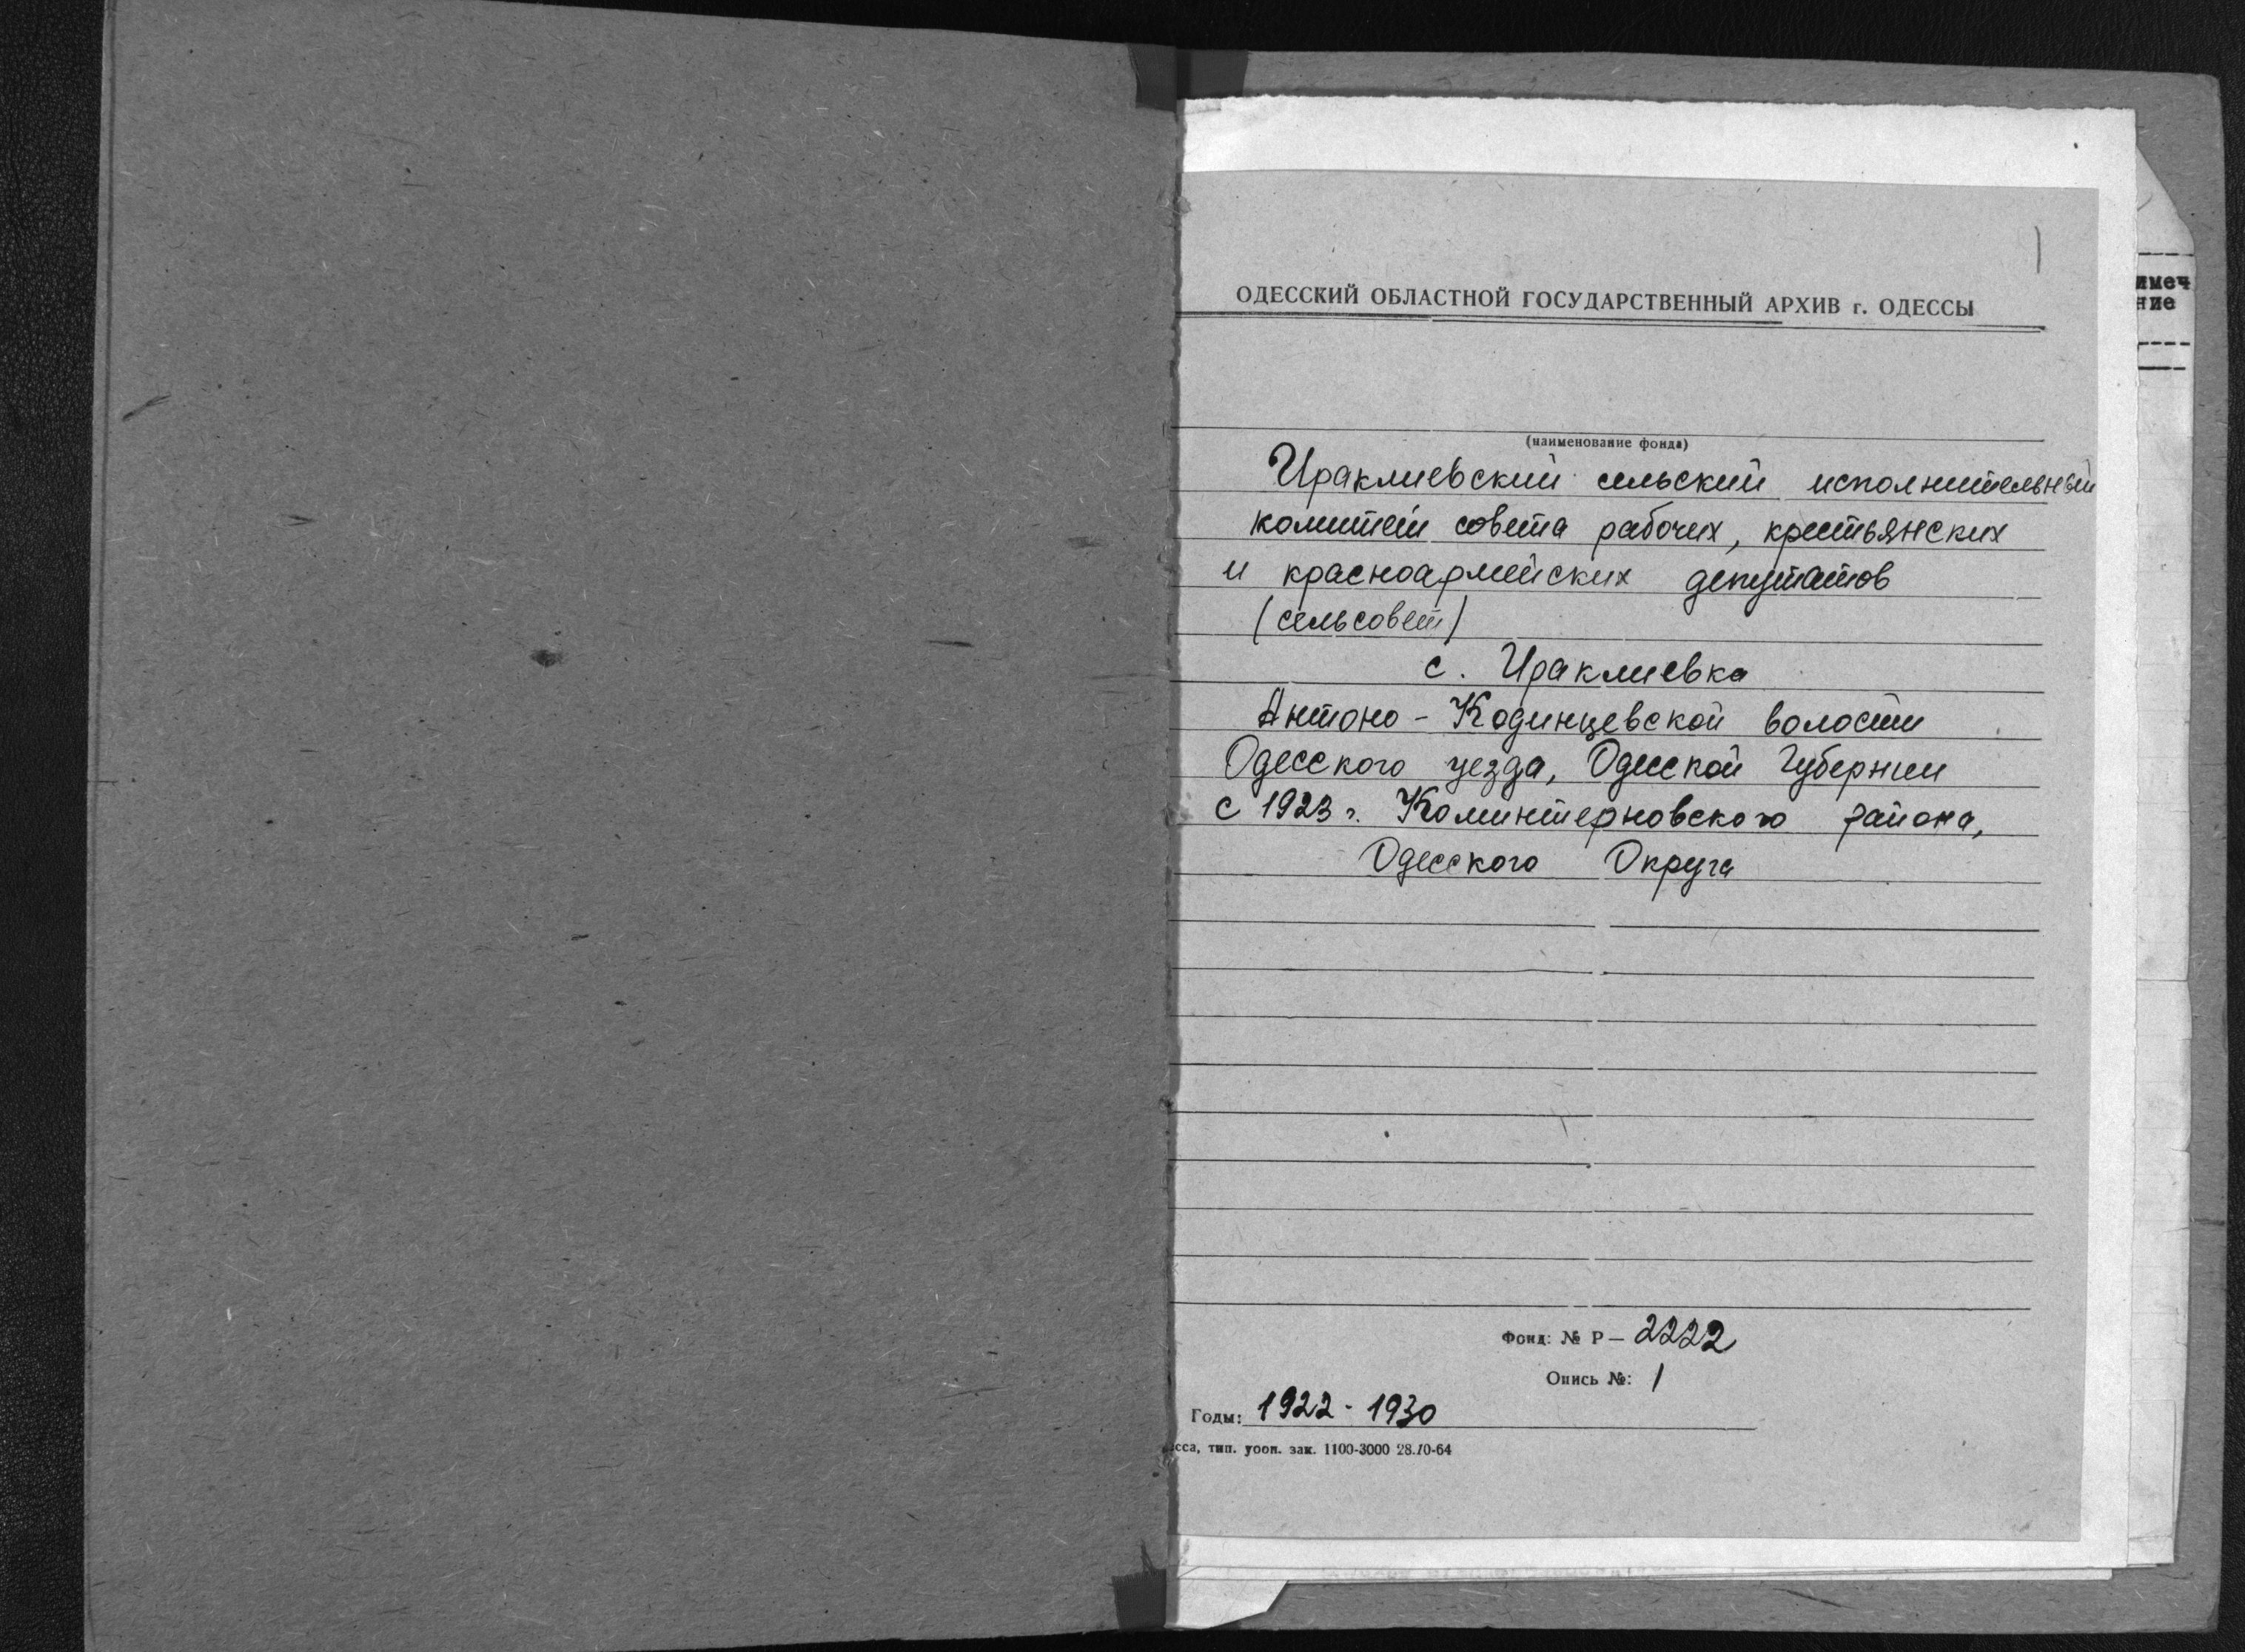 1
ОДЕССКИЙ ОБЛАСТНОЙ ГОСУДАРСТВЕННЫЙ АРХИВ г. ОДЕССЫ
(наименование фонда)
Ираклиевский сельский исполнительный
комитет совета рабочих, крестьянских
и красноармейских депутатов
(сельсовет)
с. Ираклиевка
Антоно-Кодинцевской волости
Одесского уезда, Одесской Губернии
с 1923 г. Коминтерновского района,
Одесского Округа
Фонд: № Р— 2222
Опись №: 1
Годы: 1922 - 1930
сса, тип. уооп. зак. 1100-3000 28.10-64
имеч
ние